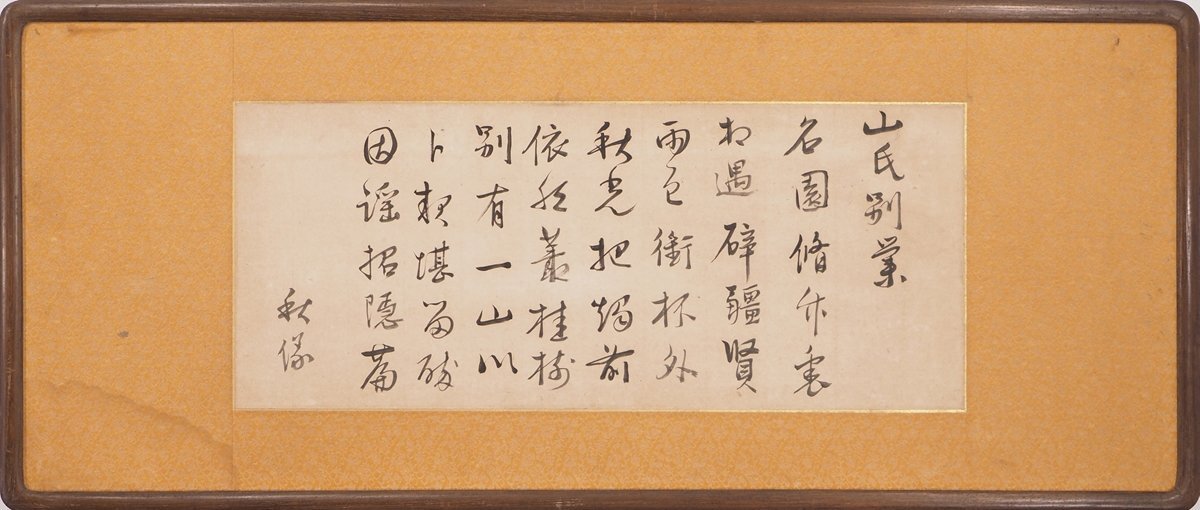 山氏別業
名園脩竹裏
相遇辟疆賢
雨色銜杯外
秋光把燭前
依然叢桂樹
別有一山川
卜堪留酔
因謡招隠篇
秋儀